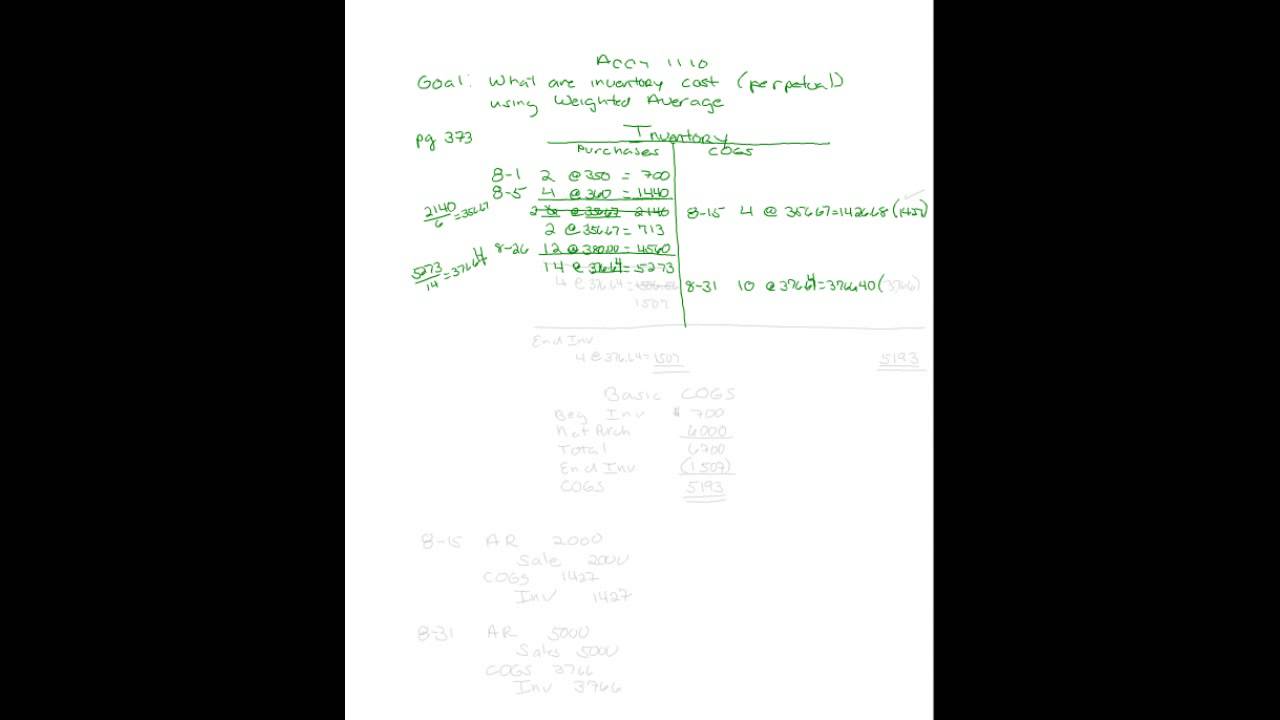 Accy 1110
Goal: What are inventory cost (perpetual)
using Weighted Average
pg 373
Inventory
Purchases COGS
8-1 2 @ 350 = 700
8-5 4 @ 360 = 1440
2140/6 = 35667
2 6 @ 35667 2140
8-15 4 @ 35667 = 142668 (1427)
2 @ 35667 = 713
8-26 12 @ 38000 = 4560
5273/14 = 37664
14 @ 37664 = 5273
4 @ 37664 =
8-31 10 @ 37664 = 376640 (3766)
1507
End Inv
4 @ 376.64 = 1507 5193
Basic COGS
Beg Inv $ 700
Net Purch 6000
Total 6700
End Inv (1507)
COGS 5193
8-15 AR 2000
Sale 2000
COGS 1427
Inv 1427
8-31 AR 5000
Sales 5000
COGS 3766
Inv 3766